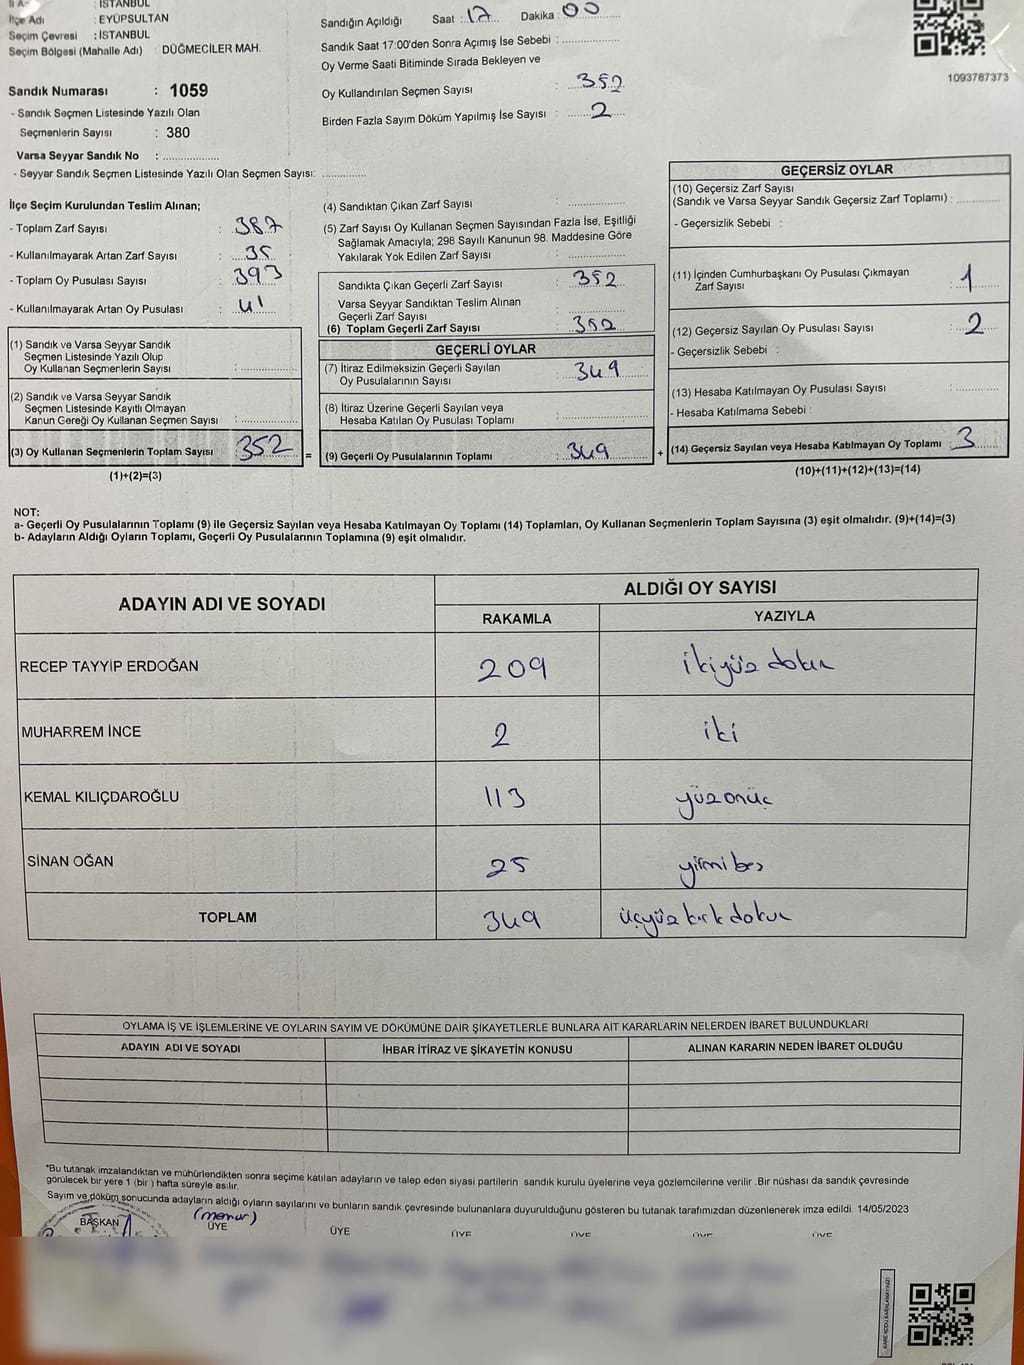 : İSTANBUL
İlçe Adı : EYÜPSULTAN
Seçim Çevresi : İSTANBUL
Seçim Bölgesi (Mahalle Adı) : DÜĞMECİLER MAH.
Sandık Numarası : 1059
- Sandık Seçmen Listesinde Yazılı Olan
Seçmenlerin Sayısı : 380
Varsa Seyyar Sandık No : ..................
- Seyyar Sandık Seçmen Listesinde Yazılı Olan Seçmen Sayısı: ..............
Sandığın Açıldığı Saat : 17 Dakika : 00
Sandık Saat 17:00'den Sonra Açımış İse Sebebi : ..................
Oy Verme Saati Bitiminde Sırada Bekleyen ve
Oy Kullandırılan Seçmen Sayısı : 352
Birden Fazla Sayım Döküm Yapılmış İse Sayısı : 2
1093787373
İlçe Seçim Kurulundan Teslim Alınan;
- Toplam Zarf Sayısı : 387
- Kullanılmayarak Artan Zarf Sayısı : 35
- Toplam Oy Pusulası Sayısı : 393
- Kullanılmayarak Artan Oy Pusulası : 41
(1) Sandık ve Varsa Seyyar Sandık
Seçmen Listesinde Yazılı Olup
Oy Kullanan Seçmenlerin Sayısı : ..................
(2) Sandık ve Varsa Seyyar Sandık
Seçmen Listesinde Kayıtlı Olmayan
Kanun Gereği Oy Kullanan Seçmen Sayısı : ..................
(3) Oy Kullanan Seçmenlerin Toplam Sayısı : 352 =
(1)+(2)=(3)
(4) Sandıktan Çıkan Zarf Sayısı : ..................
(5) Zarf Sayısı Oy Kullanan Seçmen Sayısından Fazla İse, Eşitliği
Sağlamak Amacıyla; 298 Sayılı Kanunun 98. Maddesine Göre
Yakılarak Yok Edilen Zarf Sayısı : ..................
Sandıkta Çıkan Geçerli Zarf Sayısı : 352
Varsa Seyyar Sandıktan Teslim Alınan
Geçerli Zarf Sayısı : ..................
(6) Toplam Geçerli Zarf Sayısı : 352
GEÇERLİ OYLAR
(7) İtiraz Edilmeksizin Geçerli Sayılan
Oy Pusulalarının Sayısı : 349
(8) İtiraz Üzerine Geçerli Sayılan veya
Hesaba Katılan Oy Pusulası Toplamı : ..................
(9) Geçerli Oy Pusulalarının Toplamı : 349 +
GEÇERSİZ OYLAR
(10) Geçersiz Zarf Sayısı
(Sandık ve Varsa Seyyar Sandık Geçersiz Zarf Toplamı) : ..............
- Geçersizlik Sebebi :
(11) İçinden Cumhurbaşkanı Oy Pusulası Çıkmayan
Zarf Sayısı : 1
(12) Geçersiz Sayılan Oy Pusulası Sayısı : 2
- Geçersizlik Sebebi :
(13) Hesaba Katılmayan Oy Pusulası Sayısı : ..............
- Hesaba Katılmama Sebebi :
(14) Geçersiz Sayılan veya Hesaba Katılmayan Oy Toplamı : 3
(10)+(11)+(12)+(13)=(14)
NOT:
a- Geçerli Oy Pusulalarının Toplamı (9) ile Geçersiz Sayılan veya Hesaba Katılmayan Oy Toplamı (14) Toplamları, Oy Kullanan Seçmenlerin Toplam Sayısına (3) eşit olmalıdır. (9)+(14)=(3)
b- Adayların Aldığı Oyların Toplamı, Geçerli Oy Pusulalarının Toplamına (9) eşit olmalıdır.
ADAYIN ADI VE SOYADI ALDIĞI OY SAYISI
RAKAMLA YAZIYLA
RECEP TAYYİP ERDOĞAN 209 ikiyüz dokuz
MUHARREM İNCE 2 iki
KEMAL KILIÇDAROĞLU 113 yüzonüç
SİNAN OĞAN 25 yirmi beş
TOPLAM 349 üçyüz kırk dokuz
OYLAMA İŞ VE İŞLEMLERİNE VE OYLARIN SAYIM VE DÖKÜMÜNE DAİR ŞİKAYETLERLE BUNLARA AİT KARARLARIN NELERDEN İBARET BULUNDUKLARI
ADAYIN ADI VE SOYADI İHBAR İTİRAZ VE ŞİKAYETİN KONUSU ALINAN KARARIN NEDEN İBARET OLDUĞU
*Bu tutanak imzalandıktan ve mühürlendikten sonra seçime katılan adayların ve talep eden siyasi partilerin sandık kurulu üyelerine veya gözlemcilerine verilir .Bir nüshası da sandık çevresinde
görülecek bir yere 1 (bir ) hafta süreyle asılır.
Sayım ve döküm sonucunda adayların aldığı oyların sayılarını ve bunların sandık çevresinde bulunanlara duyurulduğunu gösteren bu tutanak tarafımızdan düzenlenerek imza edildi. 14/05/2023
(memur)
BAŞKAN ÜYE ÜYE ÜYE ÜYE ÜYE ÜYE